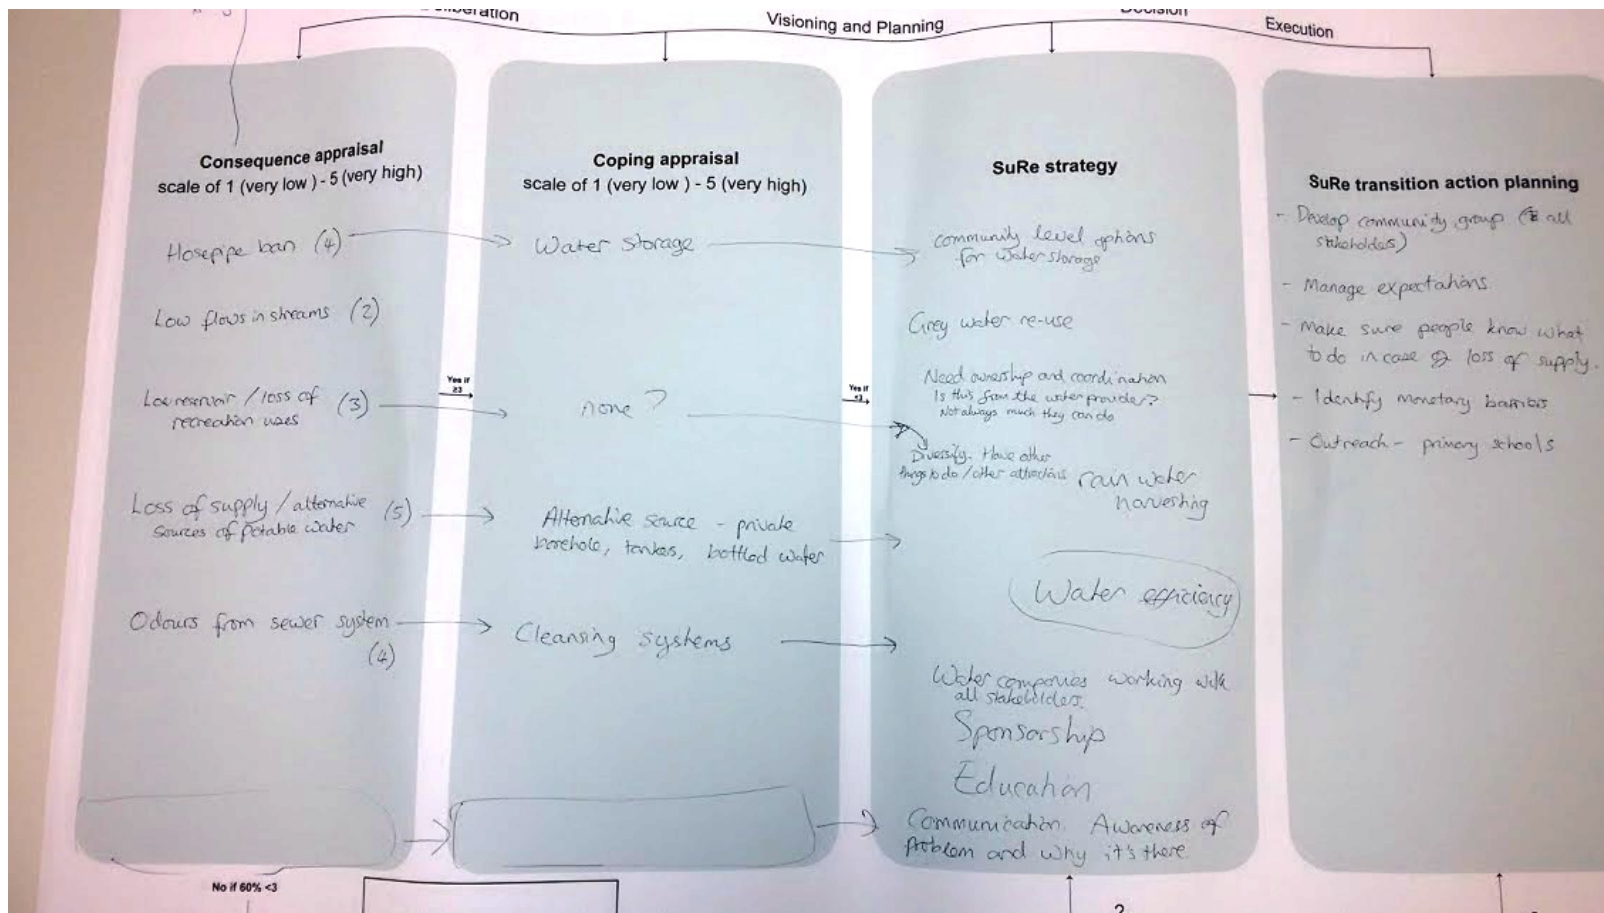 Visioning and Planning
Execution
Consequence appraisal
scale of 1 (very low ) - 5 (very high)
Hosepipe ban (4)
Low flows in streams (2)
Low reservoir / loss of (3)
recreation uses
Loss of supply / alternative (5)
sources of potable water
Odours from sewer system
(4)
No if 60% <3
Yes if
≥3
Coping appraisal
scale of 1 (very low ) - 5 (very high)
Water storage
none?
Alternative source - private
borehole, tankers, bottled water
Cleansing systems
Yes if
<3
SuRe strategy
community level options
for water storage
Grey water re-use
Need ownership and coordination
Is this from the water provider?
Not always much they can do
Diversify. Have other
things to do / other attractions
rain water
harvesting
Water efficiency
Water companies working with
all stakeholders.
Sponsorship
Education
Communication. Awareness of
problem and why it's there.
2
SuRe transition action planning
- Develop community group ( all
stakeholders)
- Manage expectations
- Make sure people know what
to do in case of loss of supply.
- Identify monetary barriers
- Outreach - primary schools